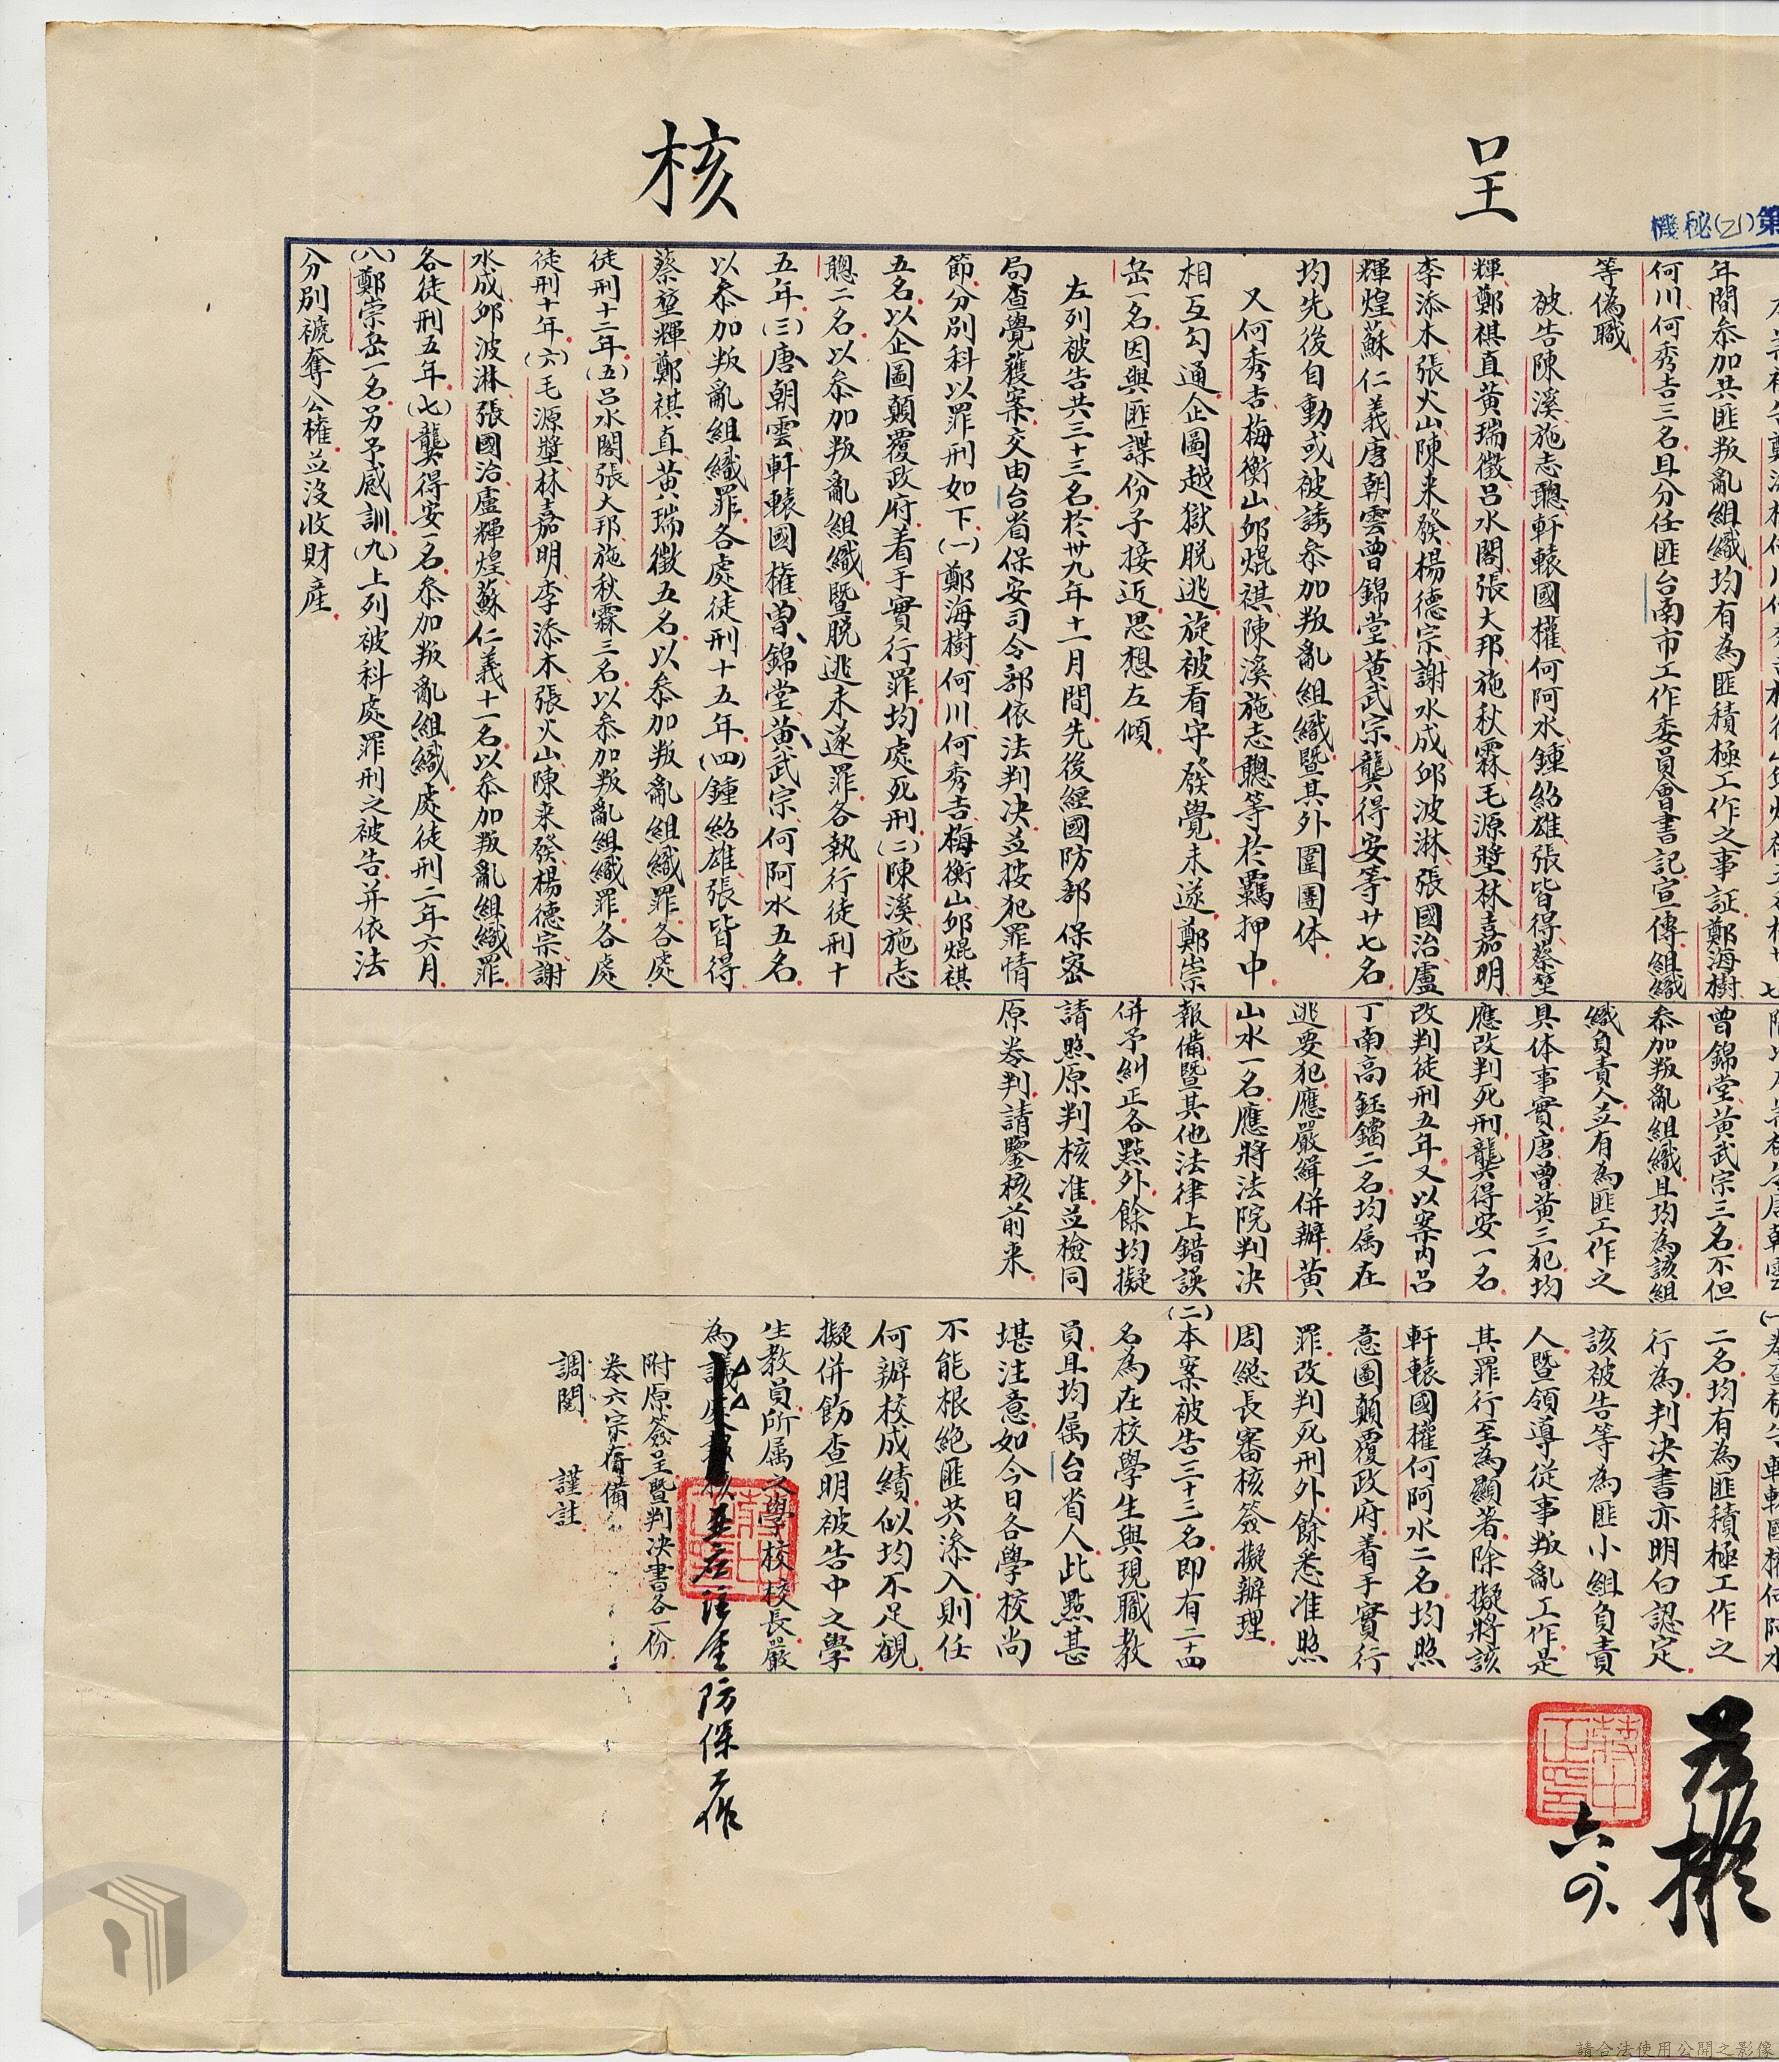 呈核
機秘(乙)第
年間參加共匪叛亂組織均有為匪積極工作之事証鄭海樹
何川何秀吉三名且分任匪台南市工作委員會書記宣傳組織
等偽職
被告陳溪施志聰軒轅國權何阿水鍾紹雄張皆得蔡堃
輝鄭祺直黃瑞徵呂水閣張大邦施秋霖毛源塟林嘉明
李添木張火山陳来發楊德宗謝水成邱波淋張國治盧
輝煌蘇仁義唐朝雲曾錦堂黃武宗龔得安等廿七名
均先後自動或被誘參加叛亂組織暨其外圍團体
又何秀吉梅衡山邱焜祺陳溪施志聰等於羈押中
相互勾通企圖越獄脱逃旋被看守發覺未遂鄭崇
岳一名因與匪諜份子接近思想左傾
左列被告共三十三名於卅九年十一月間先後經國防部保密
局查覺獲案交由台省保安司令部依法判決並按犯罪情
節分別科以罪刑如下(一)鄭海樹何川何秀吉梅衡山邱焜祺
五名以企圖顛覆政府着手實行罪均處死刑(二)陳溪施志
聰二名以參加叛亂組織暨脱逃未遂罪各執行徒刑十
五年(三)唐朝雲軒轅國權曾錦堂黃武宗何阿水五名
以參加叛亂組織罪各處徒刑十五年(四)鍾紹雄張皆得
蔡堃輝鄭祺直黃瑞徵五名以參加叛亂組織罪各處
徒刑十二年(五)呂水閣張大邦施秋霖三名以參加叛亂組織罪各處
徒刑十年(六)毛源塟林嘉明李添木張火山陳来發楊德宗謝
水成邱波淋張國治盧輝煌蘇仁義十一名以參加叛亂組織罪
各徒刑五年(七)龔得安一名參加叛亂組織處徒刑二年六月
(八)鄭崇岳一名另予感訓(九)上列被科處罪刑之被告并依法
分別褫奪公權並沒收財產
曾錦堂黃武宗三名不但
參加叛亂組織且均為該組
織負責人並有為匪工作之
具体事實唐曾黃三犯均
應改判死刑龔得安一名
改判徒刑五年又以案內呂
丁南高鈺鐺二名均属在
逃要犯應嚴緝併辦黃
山水一名應將法院判决
報備暨其他法律上錯誤
併予糾正各點外餘均擬
請照原判核准並檢同
原卷判請鑒核前来
二名均有為匪積極工作之
行為判决書亦明白認定
該被告等為匪小組負責
人暨領導從事叛亂工作是
其罪行至為顯著除擬將該
軒轅國權何阿水二名均照
意圖顛覆政府着手實行
罪改判死刑外餘悉准照
周總長審核簽擬辦理
(二)本案被告三十三名即有二十四
名為在校學生與現職教
員且均属台省人此點甚
堪注意如今日各學校尚
不能根絶匪共滲入則任
何辦校成績似均不足觀
擬併飭查明被告中之學
生教員所属之學校校長嚴
為議處
附原簽呈暨判决書各一份
卷六宗存備
調閱 謹註
防保工作
六
請合法使用公開之影像